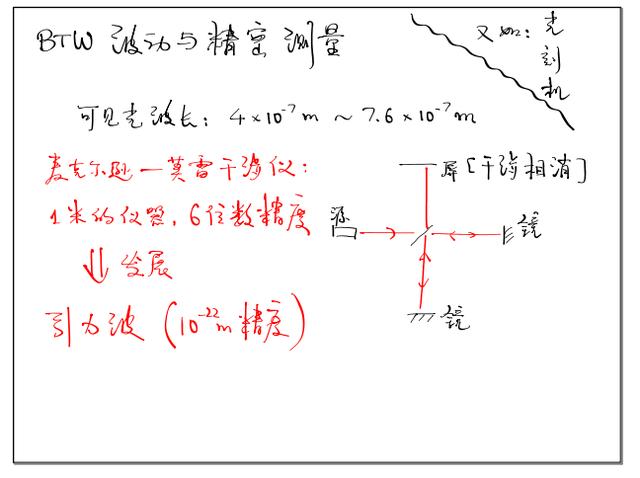 BTW 波动与精密测量
又如：光刻机
可见光波长：4×10⁻⁷m ~ 7.6×10⁻⁷m
麦克尔逊—莫雷干涉仪：
1米的仪器，6位数精度
⇓ 发展
引力波（10⁻²²m精度）
屏［干涉相消］
源
镜
镜